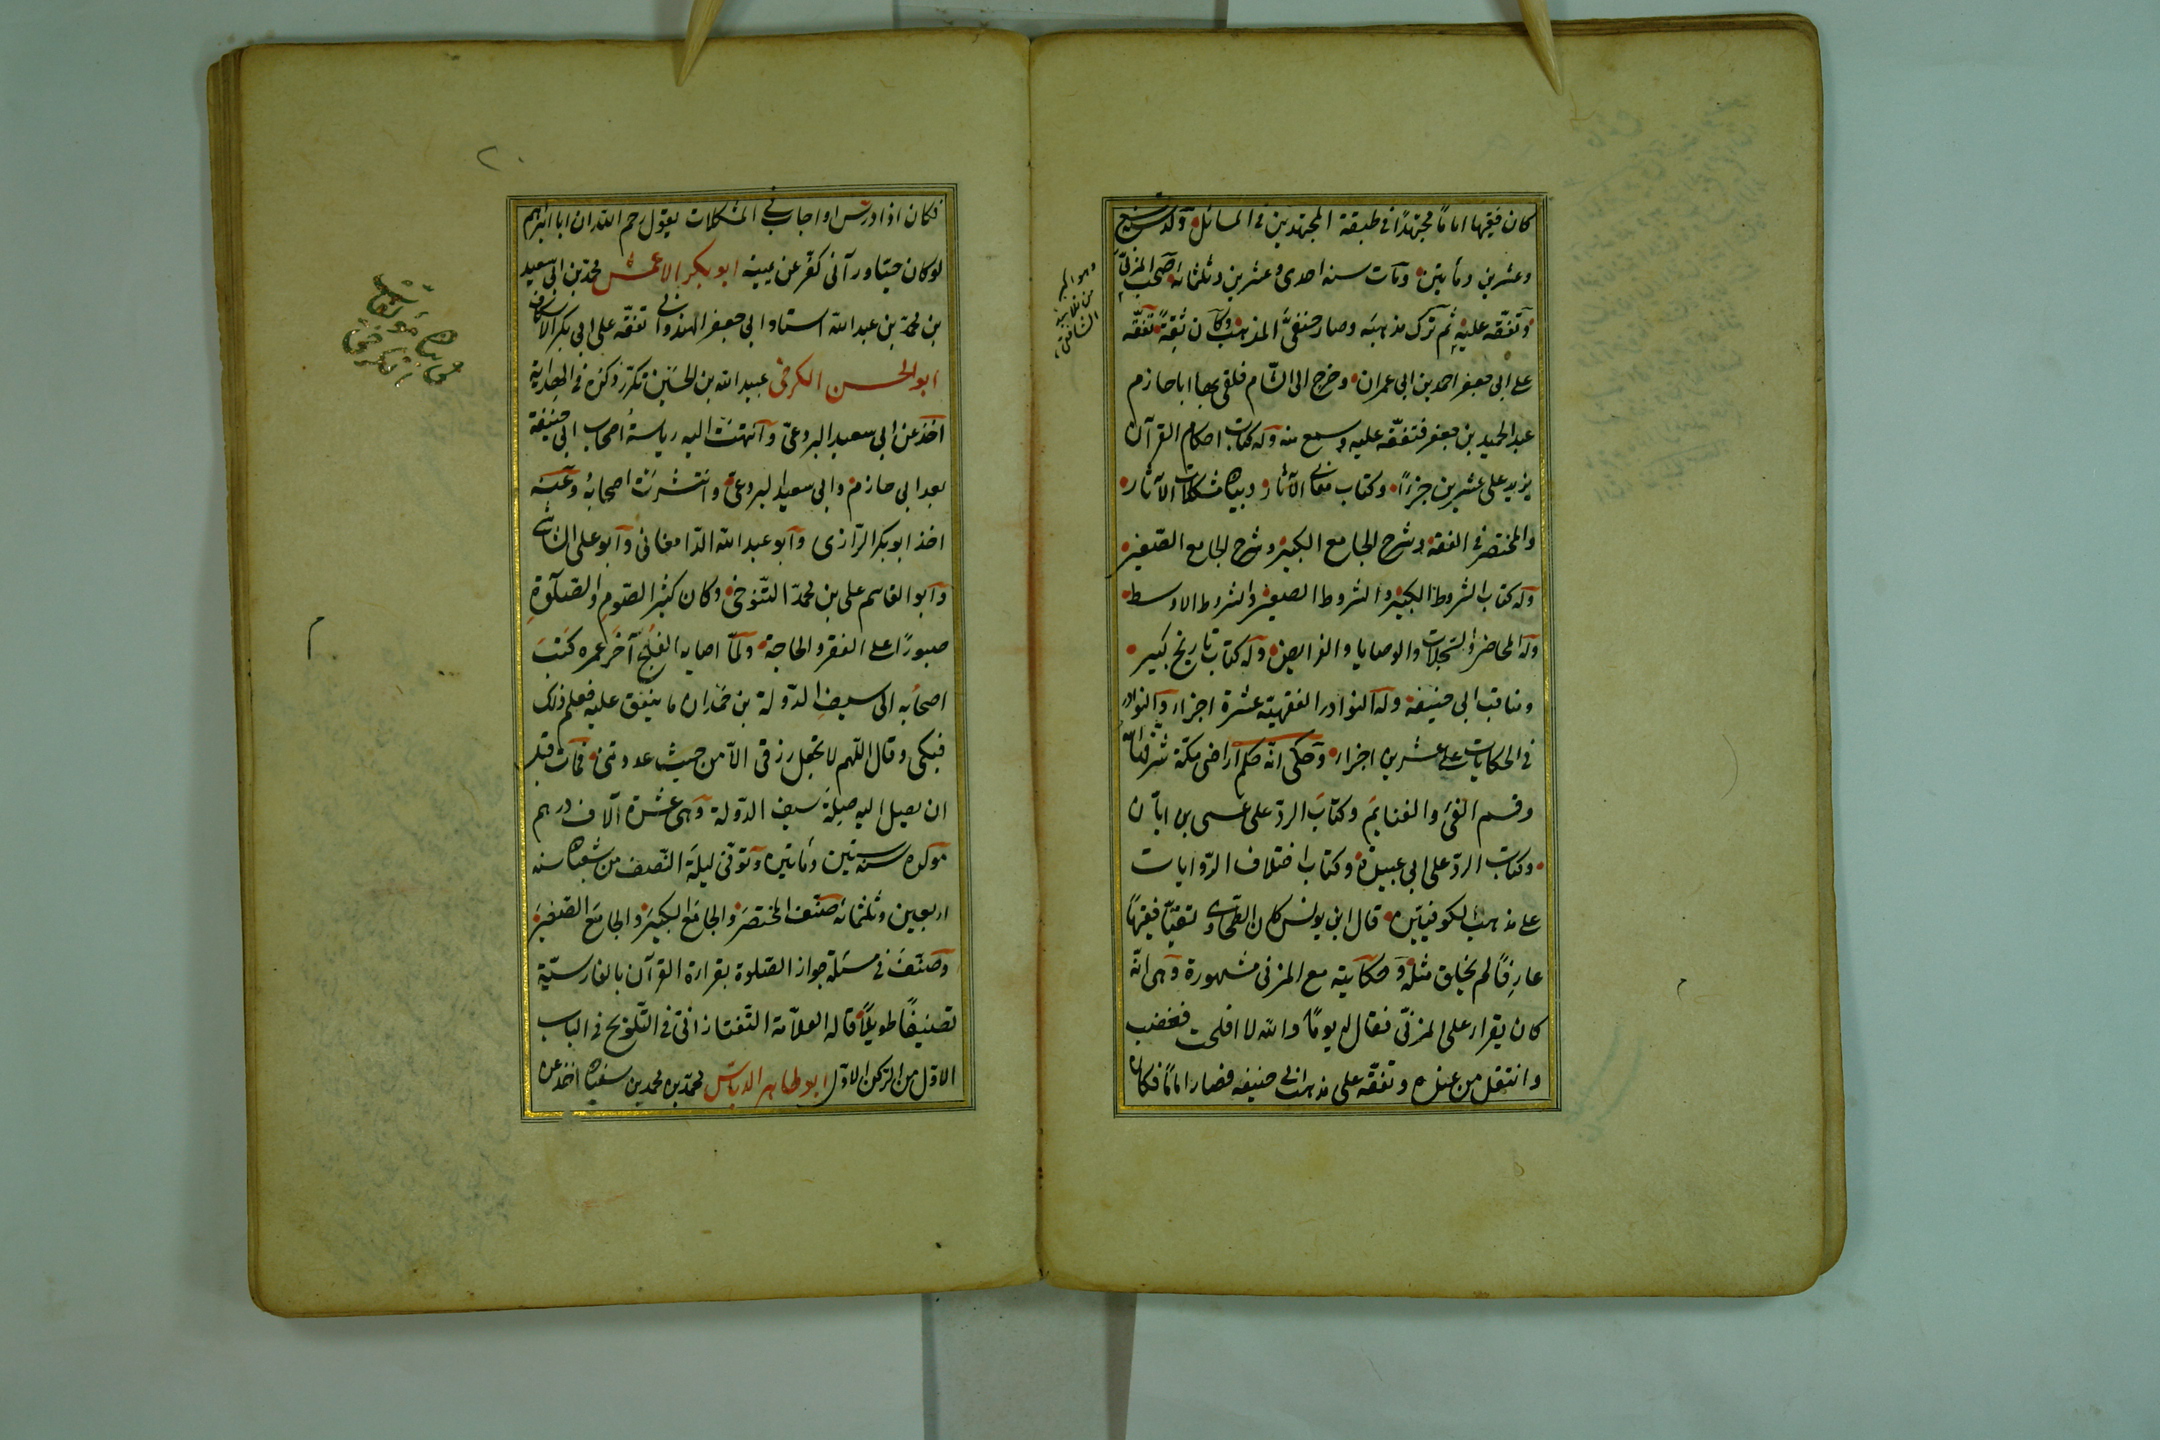 كان فقيها اماما مجتهدًا في طبقة المجتهدين في المسائل ولد سنة تسع
وعشرين ومأتين ومات سنه احدى وعشرين وثلثمائة صحب المزنى
وتفقّه عليه ثم ترك مذهبه وصار حنفىّ المذهب وكان ثقةً تفقّه
على ابى جعفر احمد بن ابى عمران وخرج الى الشام فلقى بها ابا حازم
عبد الحميد بن جعفر فتفقّه عليه وسمع منه وله كتاب احكام القرآن
يزيد على عشرين جزءًا وكتاب معانى الآثار وبيان مشكلات الآثار
والمختصر في الفقه وشرح الجامع الكبير وشرح الجامع الصغير
وله كتاب الشروط الكبير والشروط الصغير والشروط الاوسط
وله المحاضر والسجلات والوصايا والفرايض وله كتاب تاريخ كبير
ومناقب ابى حنيفة وله النوادر الفقهيّه عشرة اجزاء والنوادر
في الحكايات على عشرين اجزاء وحكى انّه حكم اراضى مكّة شرّفها الله
وقسم الفئ والغنايم وكتاب الردّ على عيسى بن ابان
وكتاب الردّ على ابى عبيدة وكتاب اختلاف الروايات
على مذهب الكوفيين قال ابن يونس كان الطحاوى ثقيّا فقيهًا
عارفًا لم يخلق مثله وحكايته مع المزنى مشهورة وهى انّه
كان يقراء على المزنى فقال له يومًا والله لا افلحت فغضب
وانتقل من عنده وتفقّه على مذهب ابى حنيفه فصار امامًا فكان
وهو اكبر
من تلاميذ
الشافعى
٢٠
فكان اذا درس او اجاب في المشكلات يقول رحم الله ان ابا ابراهيم
لو كان حيّا ورآنى كفّر عن يمينه ابو بكر الاعمش محمد بن ابى سعيد
بن محمد بن عبد الله استاد ابى جعفر الهندوانى تفقّه على ابى بكر الاسكاف
ابو الحسن الكرخى عبيد الله بن الحسين تكرّر ذكره في الهداية
اخذ عن ابى سعيد البردعى وانتهت اليه رياسة اصحاب ابى حنيفة
بعد ابى حازم وابى سعيد البردعى وانتشرت اصحابه وعنه
اخذ ابو بكر الرازى وابو عبد الله الدّامغانى وابو على الشاشى
وابو القاسم على بن محمد التنوخى وكان كثير الصّوم والصّلوة
صبورًا على الفقر والحاجة ولمّا اصابه الفلج آخر عمره كتب
اصحابه الى سيف الدّولة بن حمدان ما ينفق عليه فعلم ذلك
فبكى وقال اللّهم لا تجعل رزقى الا من حيث عودتنى فمات قبل
ان يصل اليه صلة سيف الدّولة وهى عشرة آلاف درهم
مولده سنه ستين ومأتين وتوفّى ليلة النّصف من شعبان سنه
اربعين وثلثمائة صنّف المختصر والجامع الكبير والجامع الصغير
وصنّف في مسئلة جواز الصّلوة بقراءة القرآن بالفارسيّة
تصنيفًا طويلًا قاله العلّامة التفتازانى في التلويح في الباب
الاوّل من الركن الاوّل ابو طاهر الدباس محمد بن محمد بن سفيان اخذ عن